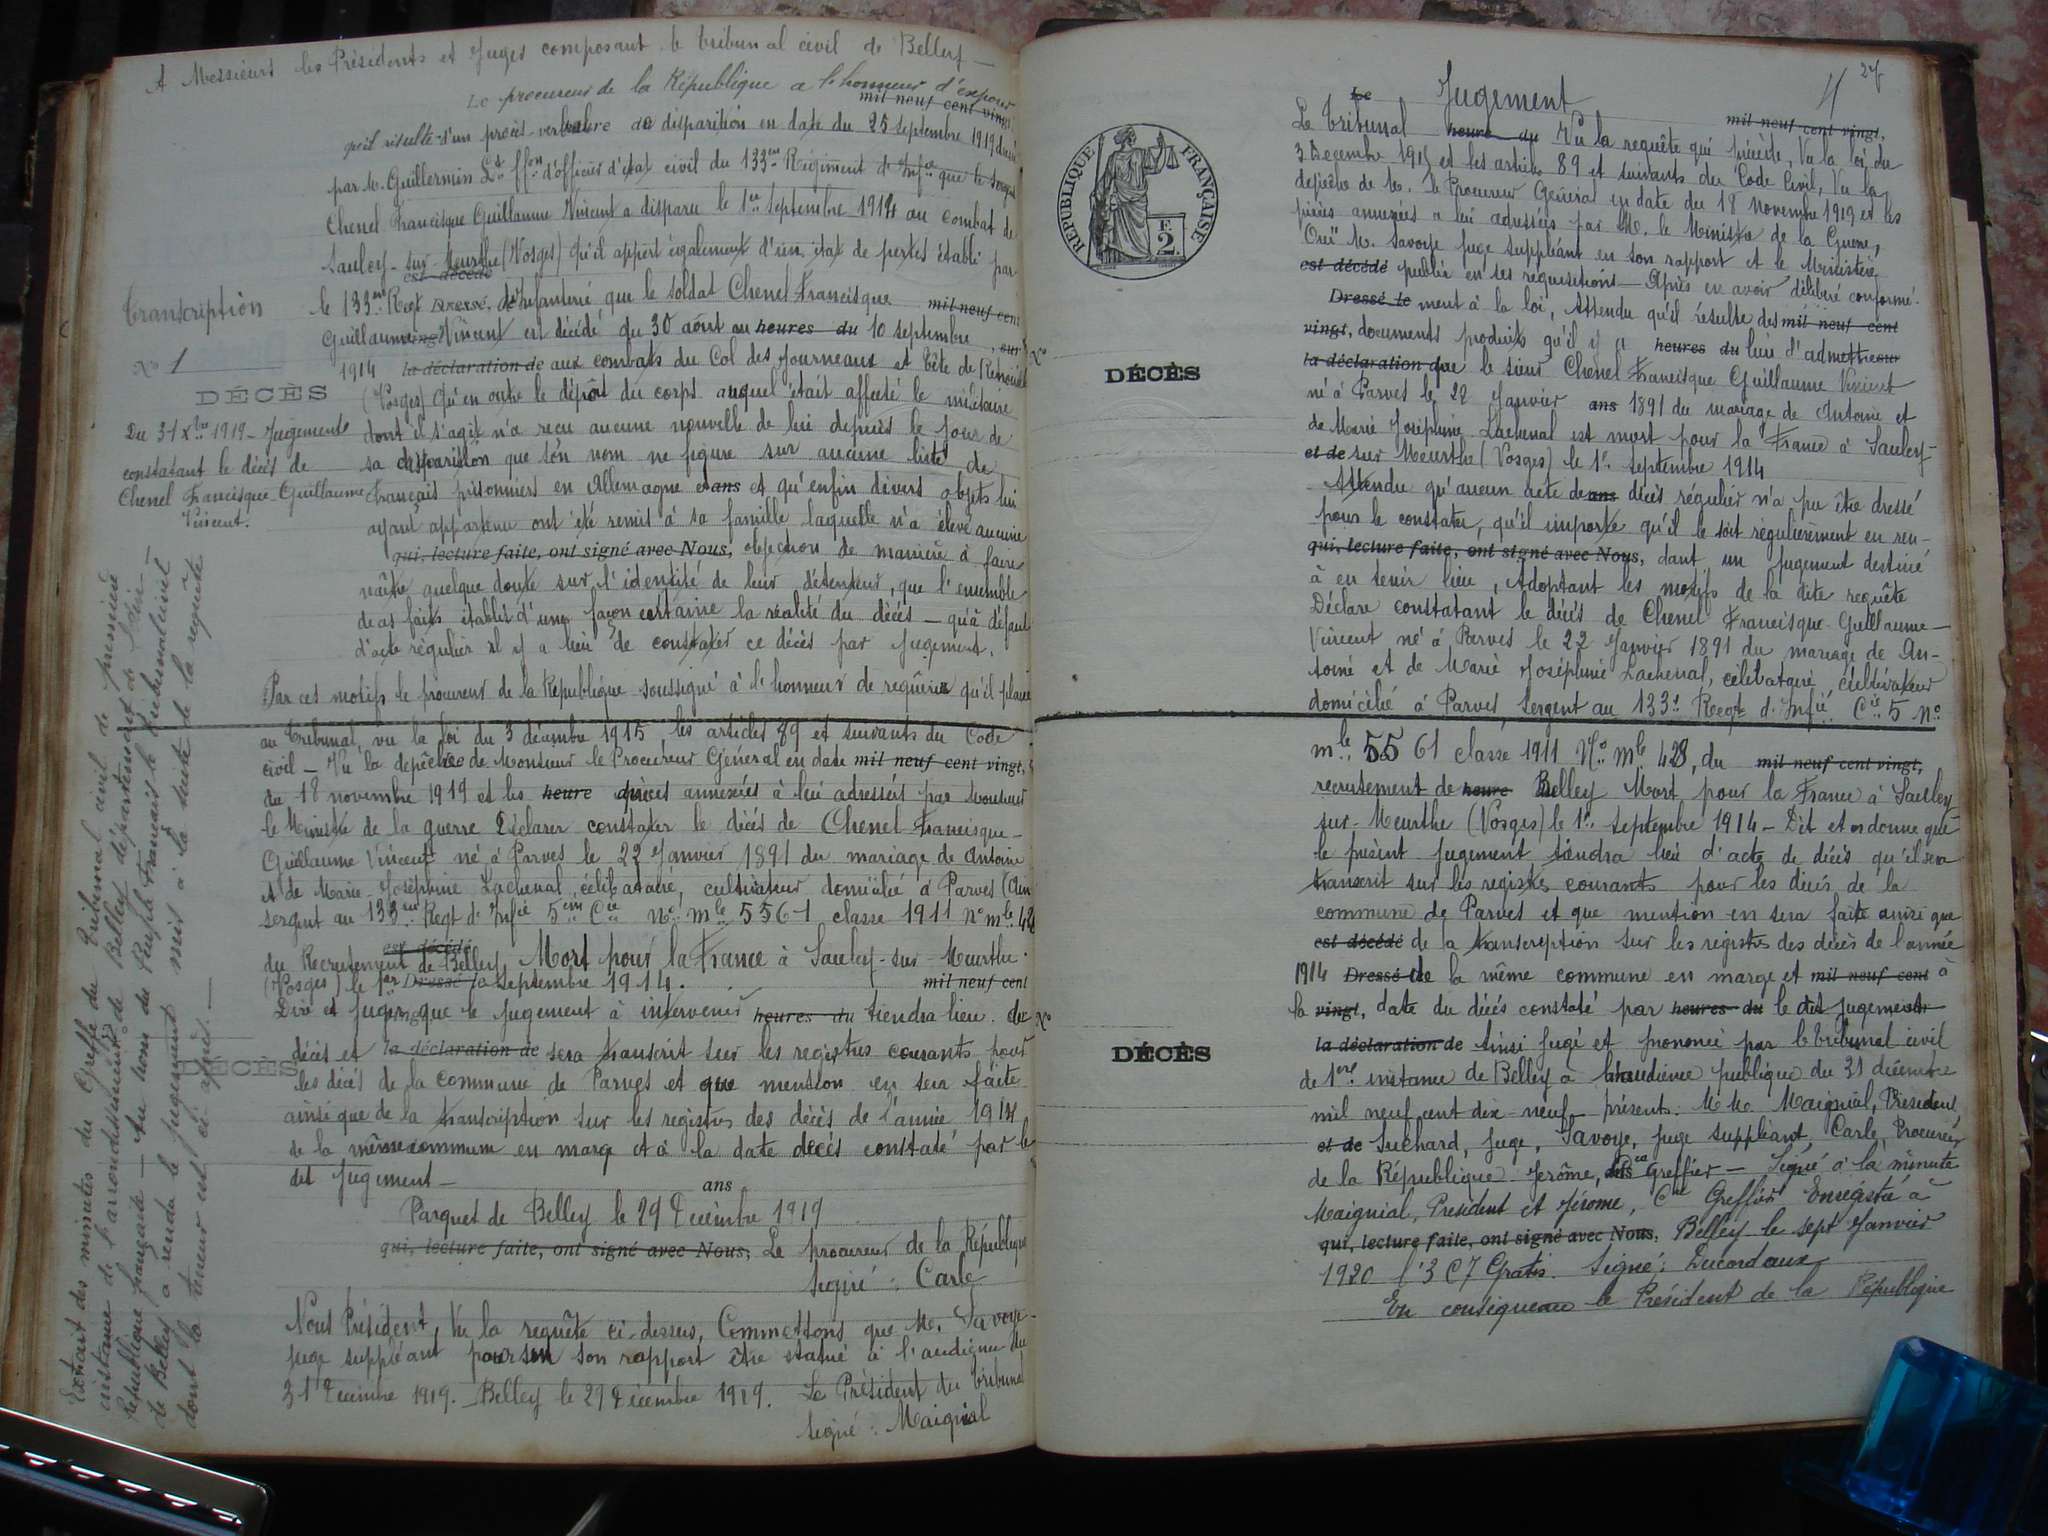 A Messieurs les Présidents et Juges composant le tribunal civil de Belley —
Le procureur de la République a l'honneur d'exposer
mil neuf cent vingt
qu'il résulte d'un procès-verbal de disparition en date du 25 septembre 1919
par M. Guillermin Lt ffon d'officier d'état civil du 133em Régiment d'Infie que le sergent
Chenel Francisque Guillaume Vincent a disparu le 1er septembre 1914 au combat de
Saulcy-sur-Meurthe (Vosges) qu'il appert également d'un état de pertes établi par
est décédé
le 133em Regt Dressé d'infanterie que le soldat Chenel Francisque mil neuf cent
Guillaume Vincent est décédé du 30 août au heures du 10 septembre
1914 la déclaration de aux combats du Col des Journeaux et Tête de
(Vosges) Qu'en outre le dépôt du corps auquel était affecté le militaire
dont il s'agit n'a reçu aucune nouvelle de lui depuis le jour de
sa disparition que son nom ne figure sur aucune liste de
Français prisonniers en Allemagne ans et qu'enfin divers objets lui
ayant appartenu ont été remis à sa famille laquelle n'a élevé aucune
qui, lecture faite, ont signé avec Nous, objection de manière à faire
naître quelque doute sur l'identité de leur détenteur, que l'ensemble
de ces faits établit d'une façon certaine la réalité du décès — qu'à défaut
d'acte régulier il y a lieu de constater ce décès par jugement.
Par ces motifs le procureur de la République soussigné a l'honneur de requérir qu'il plaise
au Tribunal, vu la loi du 3 décembre 1915 les articles 89 et suivants du Code
civil — Vu la dépêche de Monsieur le Procureur Général en date mil neuf cent vingt,
du 18 novembre 1919 et les heure pièces annexées à lui adressées par Monsieur
le Ministre de la guerre Déclarer constater le décès de Chenel Francisque-
Guillaume Vincent né à Parves le 22 Janvier 1891 du mariage de Antoine
et de Marie-Joséphine Lachenal, célibataire, cultivateur domicilié à Parves (Ain
sergent au 133em Regt d'Infie 5em Cie No mle 5561 classe 1911 No mle 428
est décédé
du Recrutement de Belley Mort pour la France à Saulcy-sur-Meurthe.
(Vosges) le 1er Dressé le septembre 1914. mil neuf cent
Dire et juger que le jugement à intervenir heures du tiendra lieu de
décès et la déclaration de sera transcrit sur les registres courants pour
les décès de la commune de Parves et que mention en sera faite
ainsi que de la transcription sur les registres des décès de l'année 1914
de la même commune en marge et à la date décès constaté par le
dit jugement —
ans
Parquet de Belley le 29 Décembre 1919
qui, lecture faite, ont signé avec Nous, Le procureur de la République
signé : Carle
Nous Président, Vu la requête ci-dessus, Commettons que M. Savoye
juge suppléant pour son rapport être statué à l'audience du
31 Décembre 1919. Belley le 29 Décembre 1919. Le Président du tribunal
signé : Maignial
Transcription
No 1
DÉCÈS
Du 31 Xbre 1919 - Jugement
constatant le décès de
Chenel Francisque Guillaume
Vincent.
Extrait des minutes du Greffe du Tribunal civil de première
instance de l'arrondissement de Belley département de l'Ain —
République française — Au nom du Peuple Français le Tribunal civil
de Belley a rendu le jugement mis à la suite de la requête
dont la teneur est ci après —
DÉCÈS
27
Jugement
Le Tribunal heure du Vu la requête qui précède, Vu la loi du mil neuf cent vingt,
3 Décembre 1915 et les articles 89 et suivants du Code Civil, Vu la
dépêche de M. le Procureur Général en date du 18 novembre 1919 et les
pièces annexées a lui adressées par M. le Ministre de la Guerre,
Ouï M. Savoye juge suppléant en son rapport et le Ministère
est décédé public en ses réquisitions — Après en avoir délibéré conformé-
Dressé le ment à la loi, Attendu qu'il résulte des mil neuf cent
vingt, documents produits qu'il y a heures du lieu d'admettre
la déclaration que le sieur Chenel Francisque Guillaume Vincent
né à Parves le 22 Janvier ans 1891 du mariage de Antoine et
de Marie Joséphine Lachenal est mort pour la France à Saulcy-
et de sur Meurthe (Vosges) le 1er septembre 1914
Attendu qu'aucun acte de ans décès régulier n'a pu être dressé
pour le constater, qu'il importe qu'il le soit régulièrement en ren-
qui, lecture faite, ont signé avec Nous, dant un jugement destiné
à en tenir lieu, Adoptant les motifs de la dite requête
Déclare constatant le décès de Chenel Francisque-Guillaume-
Vincent né à Parves le 22 Janvier 1891 du mariage de An-
toine et de Marie Joséphine Lachenal, célibataire cultivateur
domicilié à Parves, Sergent au 133e Regt d'Infie Cie 5 No
REPUBLIQUE FRANÇAISE
F.
2.
DÉCÈS
mle 5561 classe 1911 No mle 428, du mil neuf cent vingt,
recrutement de heure Belley Mort pour la France à Saulcy
sur-Meurthe (Vosges) le 1er septembre 1914 — Dit et ordonne que
le présent jugement tiendra lieu d'acte de décès qu'il sera
transcrit sur les registres courants pour les décès de la
commune de Parves et que mention en sera faite ainsi que
est décédé de la transcription sur les registres des décès de l'année
1914 Dressé de la même commune en marge et mil neuf cent à
la vingt, date du décès constaté par heures du le dit jugement
la déclaration de Ainsi jugé et prononcé par le tribunal civil
de 1ère instance de Belley à l'audience publique du 31 décembre
mil neuf cent dix-neuf — présents : M. M. Maignial, Président,
et de Suchard, juge, Savoye, juge suppléant, Carle, Procureur
de la République Jérôme, Greffier — Signé à la minute
Maignial, Président et Jérome, Cis Greffier Enregistré à
qui, lecture faite, ont signé avec Nous, Belley le sept Janvier
1920 f° 3 C 7 Gratis. Signé : Ducordaux
En conséquence le Président de la République
DÉCÈS